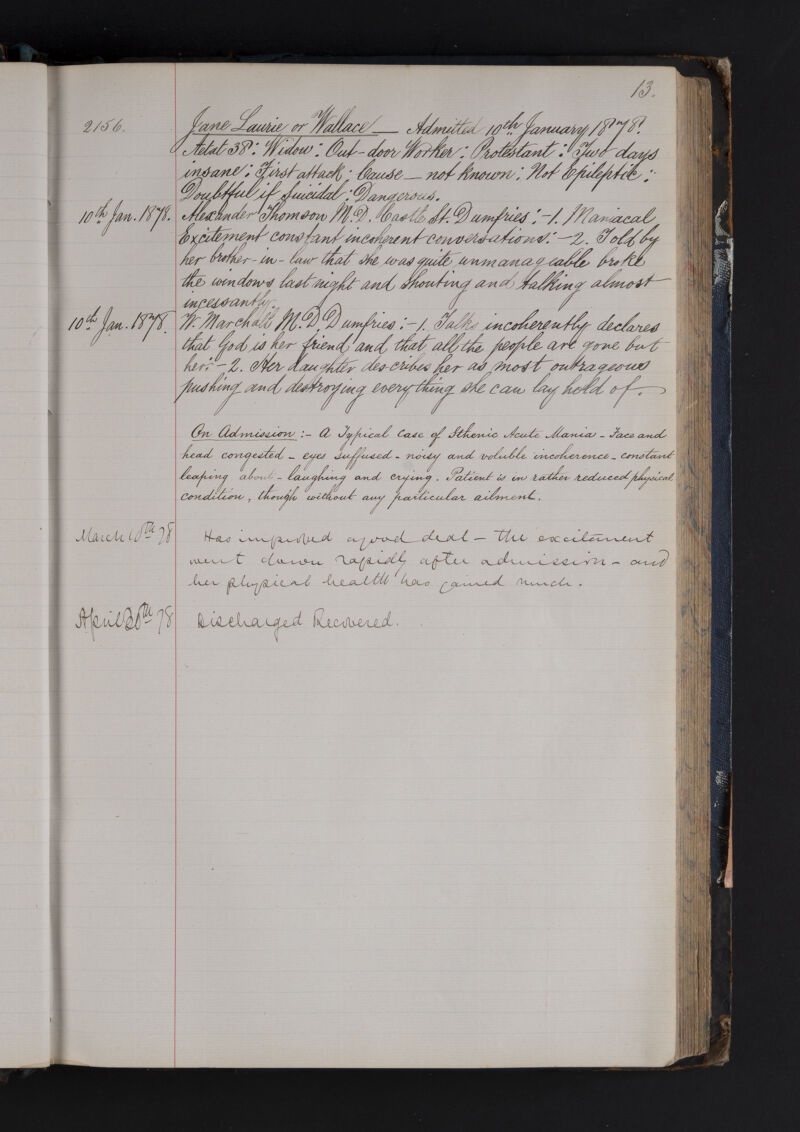 13.
2156. Jane Laurie or Wallace — Admitted 10th January 1878.
Aetat 38: Widow: Out-door Worker: Protestant: Two days
insane: First attack: Cause – not known: Not Epileptic:
Doubtful if Suicidal: Dangerous.
10th Jan. 1878. Alexander Thomson M.D. Castle St. Dumfries:–1. Maniacal
Excitement constant incoherent conversations:–2. Told by
her brother-in-law that she was quite unmanageable broke
the windows last night and shouting and talking almost
incessantly.
10th Jan. 1878. W. Marchall M.D. Dumfries:–1. Talks incoherently declares
that God is her friend and that all the people are gone but
her:–2. Her daughter describes her as most outrageous
pushing and destroying everything she can lay hold of.
On Admission:– A Typical case of Sthenic Acute Mania – Face and
head congested – eyes suffused – noisy and voluble incoherence – constant
leaping about – laughing and crying. Patient is in rather reduced physical
condition, though without any particular ailment.
March 10th 78 Has improved a good deal – the excitement
went down rapidly after admission – and
her physical health has gained much.
April 30th 78 Discharged Recovered.